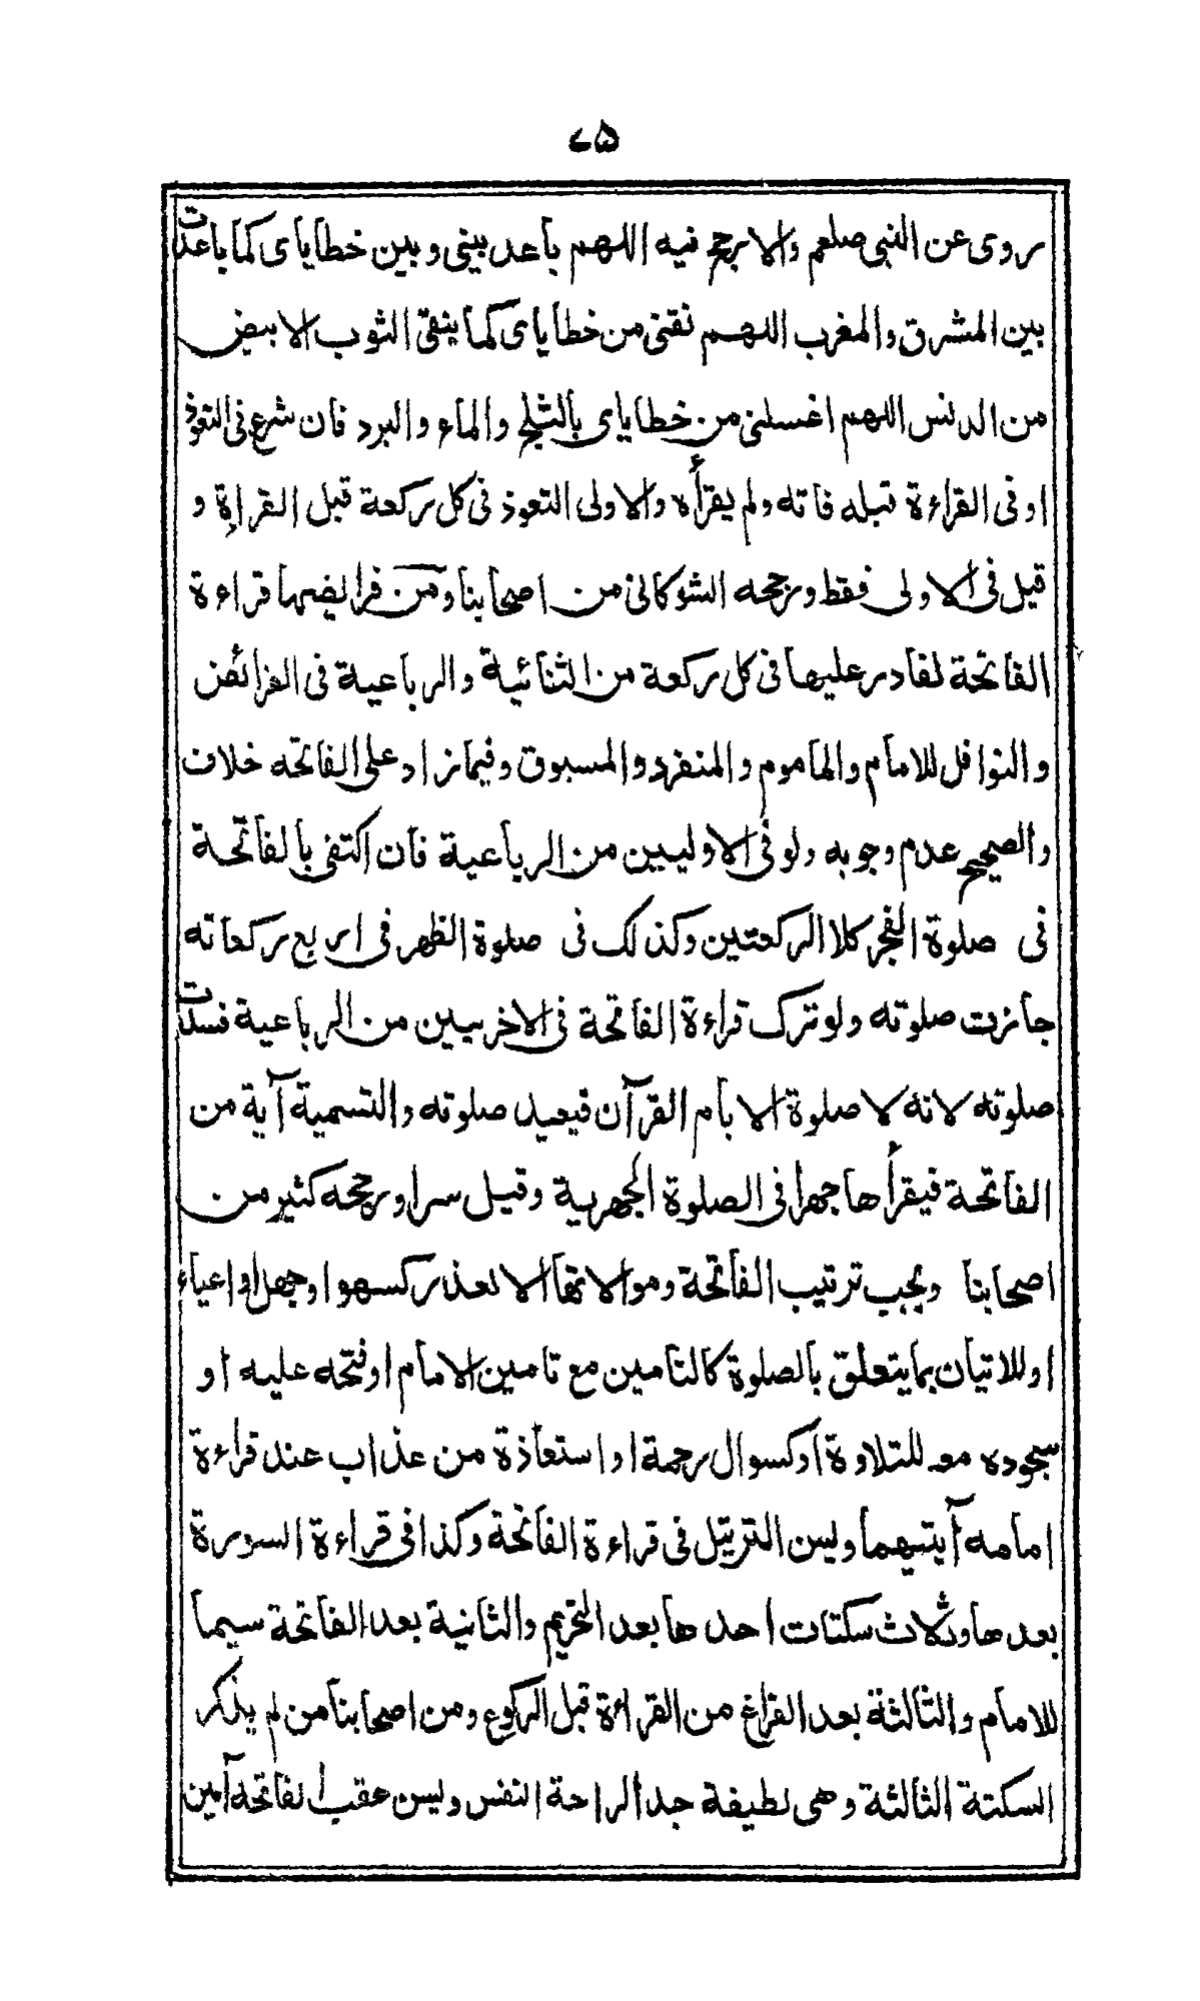 ٧٥
روى عن النبى صلعم والارجح فيه اللهم باعد بينى وبين خطاياى كما باعدت
بين المشرق والمغرب اللهم نقنى من خطاياى كما ينقى الثوب الابيض
من الدنس اللهم اغسلنى من خطاياى بالثلج والماء والبرد فان شرع فى التعوذ
او فى القراءة قبله فاته ولم يقرأه والاولى التعوذ فى كل ركعة قبل القراءة و
قيل فى الاولى فقط ورجحه الشوكانى من اصحابنا ومن فرائضها قراءة
الفاتحة لقادر عليها فى كل ركعة من الثنائية والرباعية فى الفرائض
والنوافل للامام والماموم والمنفرد والمسبوق وفيما زاد على الفاتحه خلاف
والصحيح عدم وجوبه ولو فى الاوليين من الرباعية فان اكتفى بالفاتحة
فى صلوة الفجر كلا الركعتين وكذلك فى صلوة الظهر فى اربع ركعاته
جازت صلوته ولو ترك قراءة الفاتحة فى الاخريين من الرباعية فسدت
صلوته لانه لا صلوة الا بأم القرآن فيعيد صلوته والتسمية آية من
الفاتحة فيقرأها جهرا فى الصلوة الجهرية وقيل سرا ورجحه كثير من
اصحابنا ويجب ترتيب الفاتحة وموالاتها الا لعذر كسهو او جهل او اعياء
او للاتيان بما يتعلق بالصلوة كالتامين مع تامين الامام او فتحه عليه او
سجوده معه للتلاوة او كسوال رحمة او استعاذة من عذاب عند قراءة
امامه آيتيهما ويسن الترتيل فى قراءة الفاتحة وكذا فى قراءة السورة
بعدها وثلاث سكتات احدها بعد التحريم والثانية بعد الفاتحة سيما
للامام والثالثة بعد الفراغ من القراءة قبل الركوع ومن اصحابنا من لم يذكر
السكتة الثالثة وهى لطيفة جدا لراحة النفس ويسن عقب الفاتحه آمين